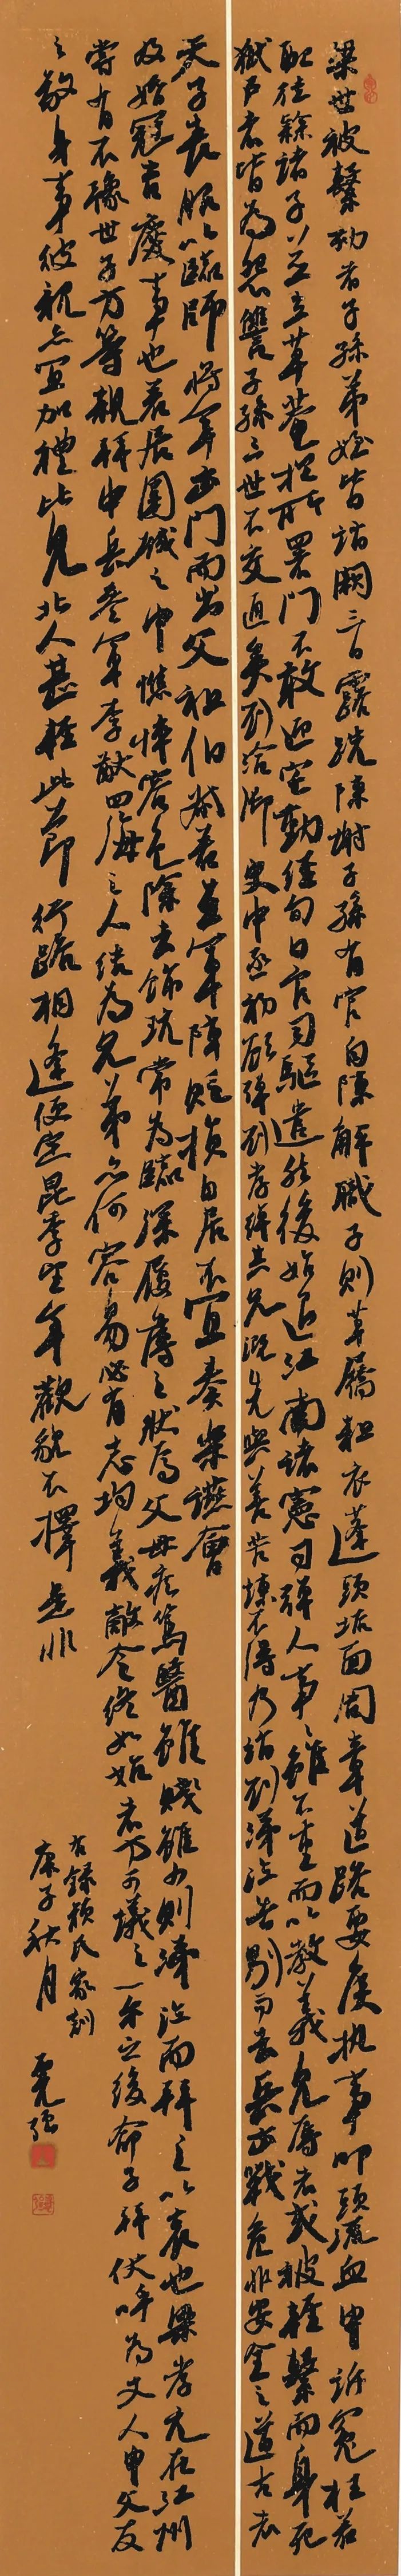 梁世被繫劾者子孫弟姪皆詣闕三日露跣陳謝子孫有官自陳解職子則草屩粗衣蓬頭垢面周章道路要候執事叩頭流血申訴冤枉若
配徒隸諸子並立草菴於所署門不敢迎宅動經旬日官司驅遣然後始退江南諸憲司彈人事々雖不重而以教義見辱者或被輕繫而身死
獄戶者皆為怨讐子孫三世不交通矣到洽御史中丞初欲彈劉孝綽其兄溉先與善苦諫不得乃詣劉涕泣告別而去兵凶戰危非安全之道古者
天子喪服以臨師將軍凶門而出父祖伯叔若在軍陣貶損自居不宜奏樂讌會
及婚冠吉慶事也若居圍城之中憔悴容色除去飾玩常為臨深履薄之狀焉父母疾篤醫雖賤雖少則涕泣而拜之以哀也梁孝元在江州
嘗有不豫世子方等親拜中兵參軍李猷四海之人結為兄弟亦何容易必有志均義敵令終如始者方可議之一爾之後命子拜伏呼為丈人申父友
之敬身事彼親亦宜加禮比見北人甚輕此節行路相逢便定昆季望年觀貌不擇是非
右錄顏氏家訓
庚子秋月